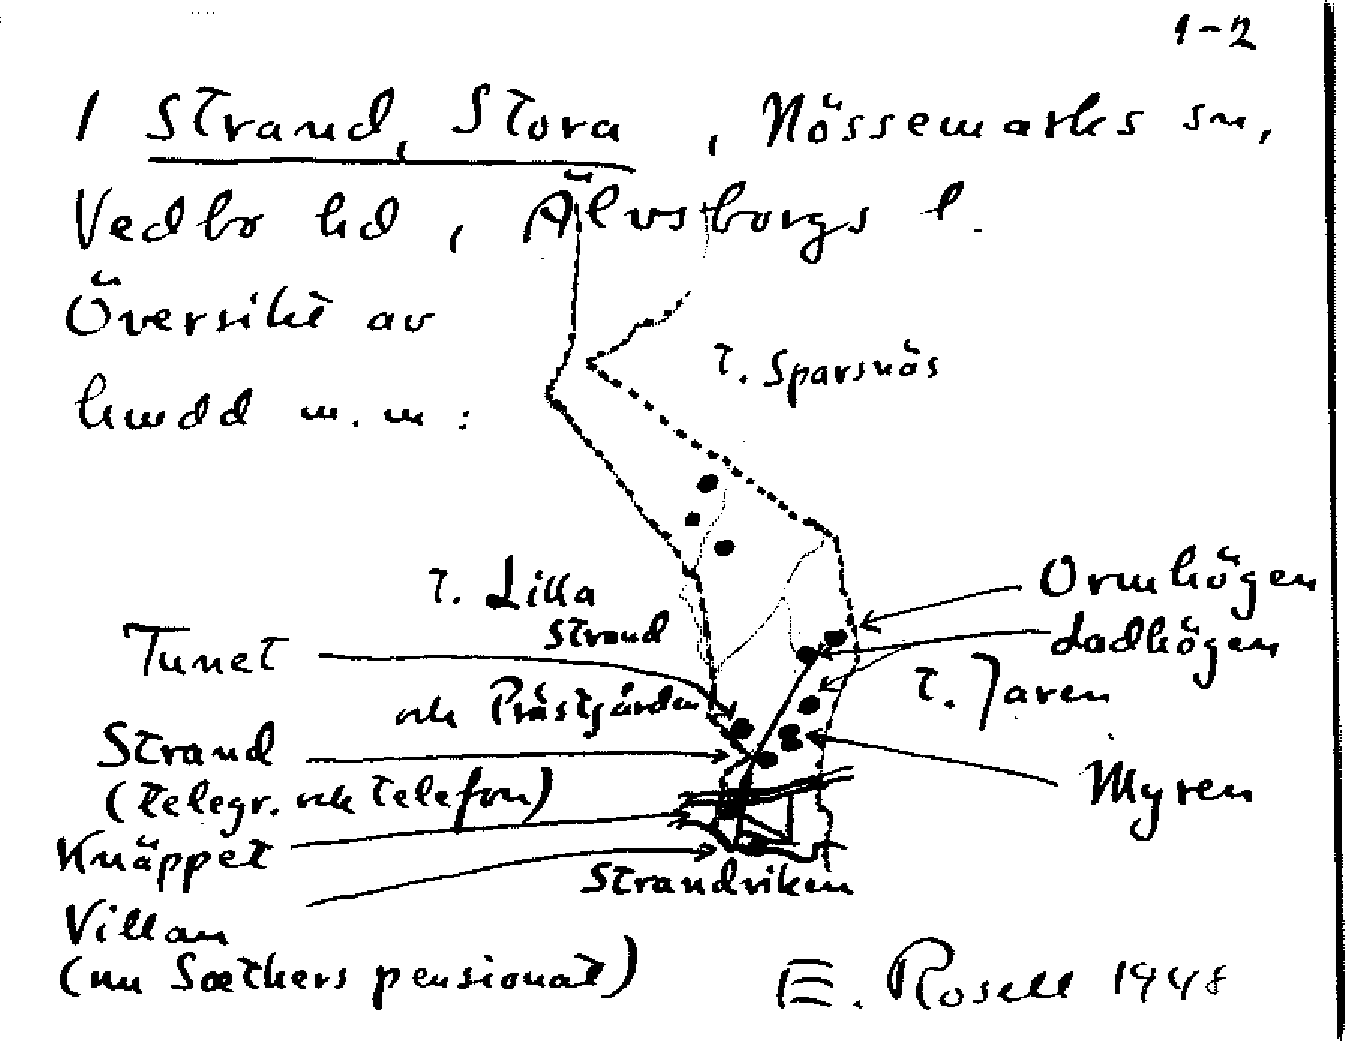 1-2
1 Strand, Stora, Nössemarks sn,
Vedbo hd, Älvsborgs l.
Översikt av
huvdd m.m:
T. Sparsnäs
T. Lilla
Strand
och Prästgården
Ormhögen
Ladhögen
T. Jaren
Tunet
Strand
(Telegr. och Telefon)
Myren
Knäppet
Strandviken
Villan
(nu Sæthers pensionat)
E. Rosell 1948